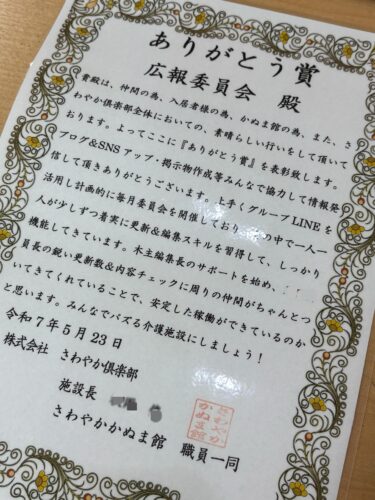 ありがとう賞
広報委員会 殿
貴殿は、仲間の為、入居者様の為、かぬま館の為、また、さ
わやか倶楽部全体においての、素晴らしい行いをして頂いて
おります。よってここに『ありがとう賞』を表彰致します。
ブログ&SNSアップ・掲示物作成等みんなで協力して情報発
信して頂きありがとうございます。上手くグループLINEを
活用し計画的に毎月委員会を開催しており の中で一人一
人が少しずつ着実に更新&編集スキルを習得して、しっかり
機能してきています。木主編集長のサポートを始め、
員長の鋭い更新数&内容チェックに周りの仲間がちゃんとつ
いてきてくれていることで、安定した稼働ができているのか
と思います。みんなでバズる介護施設にしましょう!
令和7年5月23日
株式会社 さわやか倶楽部
施設長
さわやかかぬま館 職員一同
さわやか
かぬま館